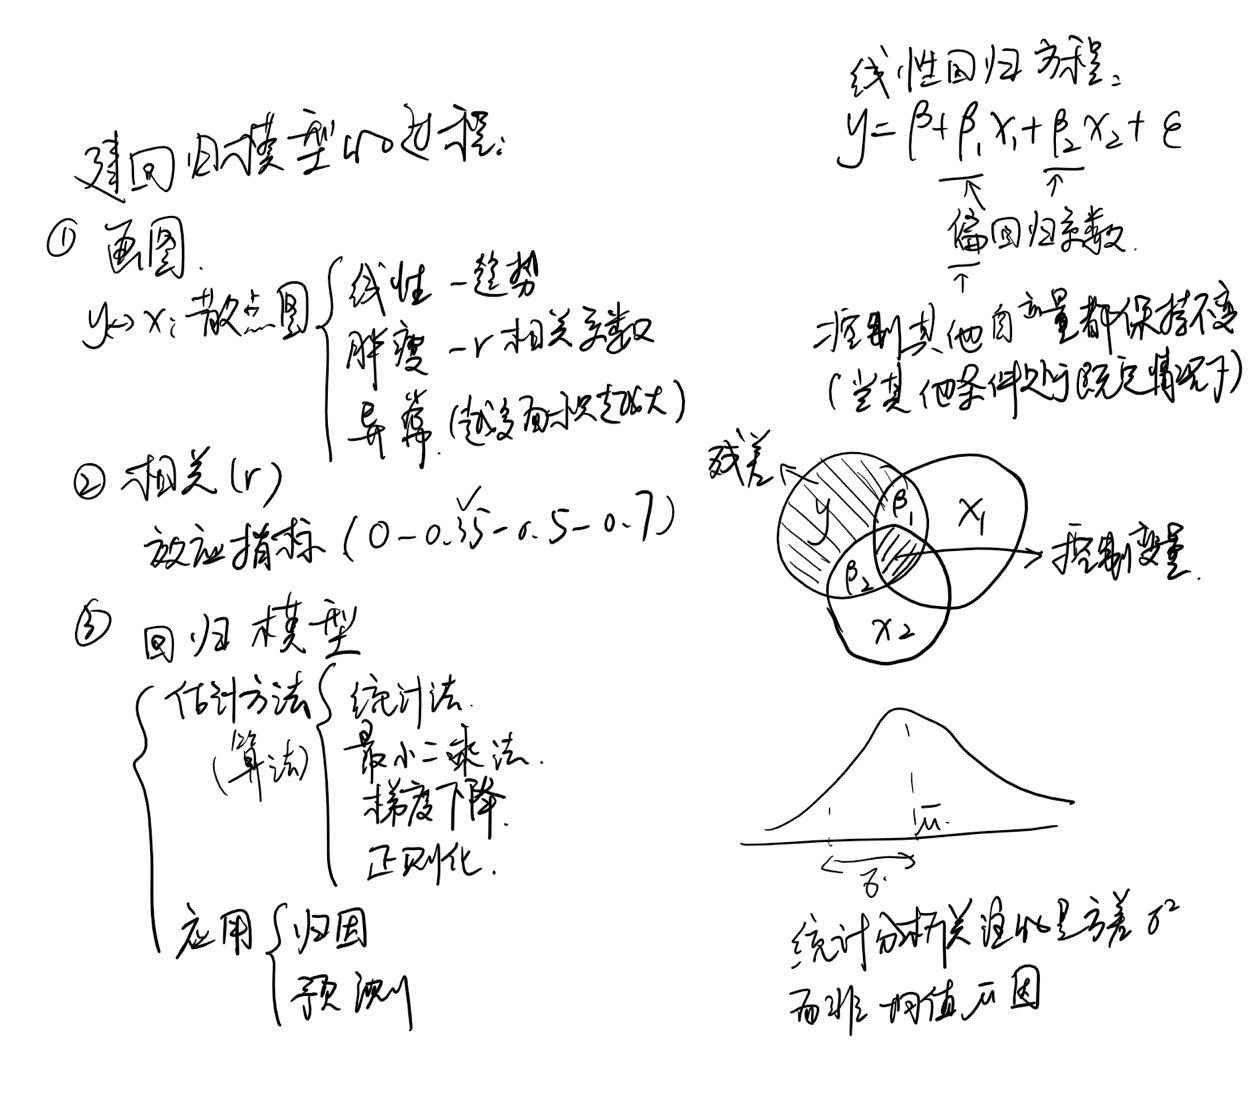 建回归模型的过程:
① 画图.
y↔x: 散点图
线性 - 趋势
胖瘦 - r 相关系数
异常 (越多面积越大)
② 相关(r)
效应指标 (0-0.35-0.5-0.7)
③ 回归模型
估计方法
(算法)
统计法.
最小二乘法.
梯度下降.
正则化.
应用
归因
预测
线性回归方程:
y=β+β₁x₁+β₂x₂+ε
偏回归系数.
控制其他自变量都保持不变
(当其他条件处于既定情况下)
残差
y
β₁
x₁
β₂
控制变量.
x₂
μ.
σ.
统计分析关注的是方差σ²
而非均值μ 因